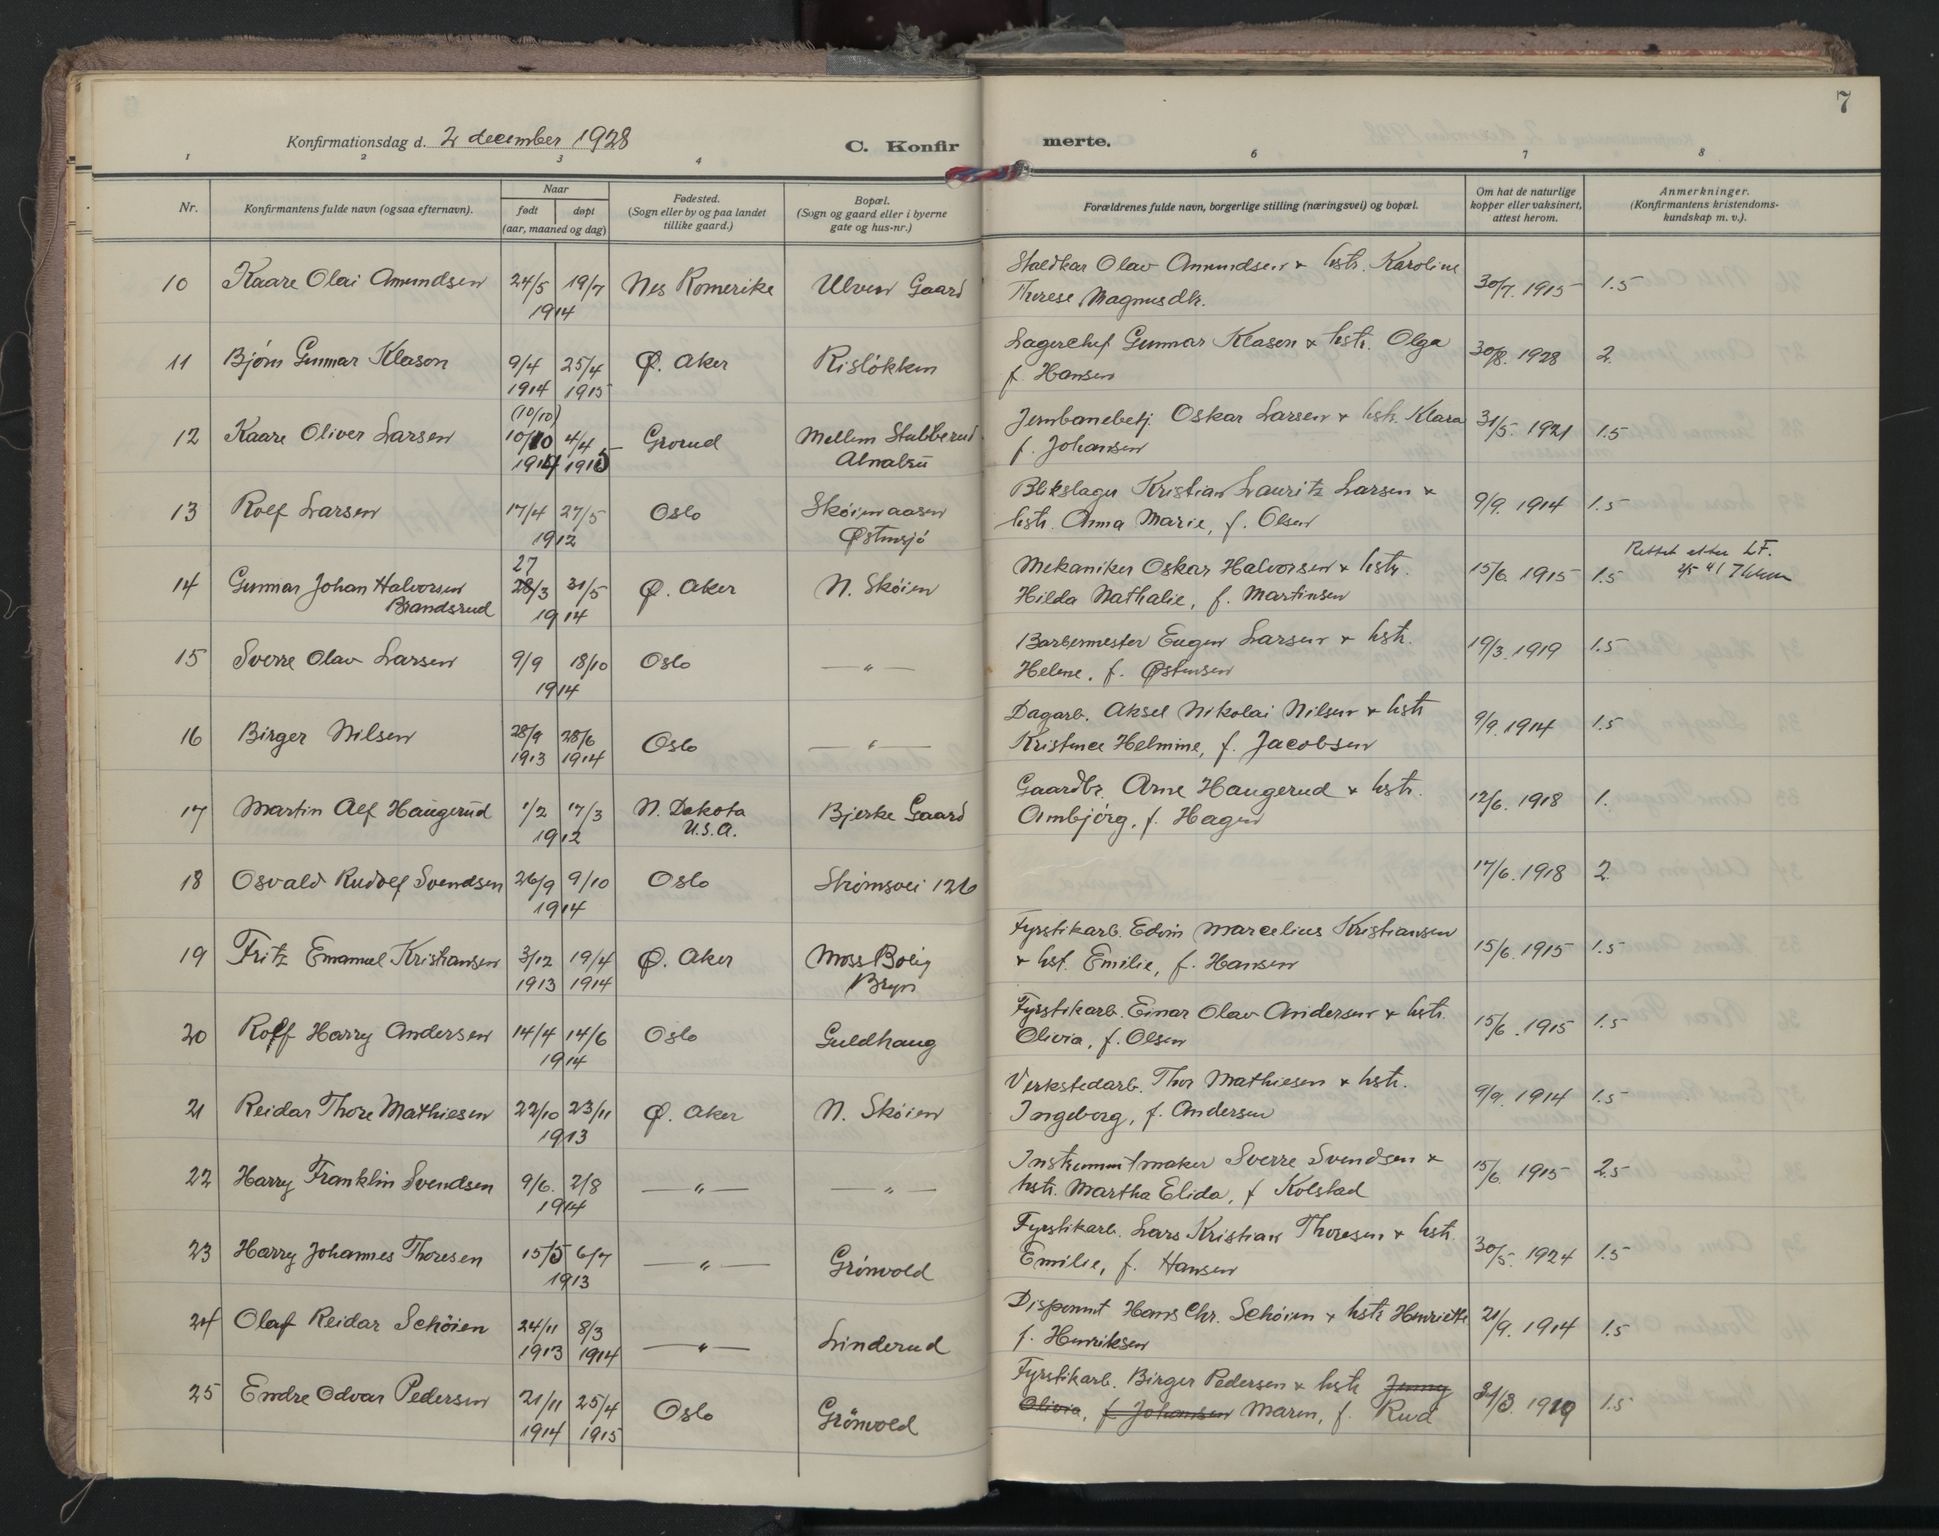 7
Konfirmationsdag d. 2 december 1928
C. Konfir merte.
1 2 3 4 6 7 8
Nr.
Konfirmantens fulde navn (ogsaa efternavn).
Naar
født døpt
(aar, maaned og dag)
Fødested.
(Sogn eller by og paa landet
tillike gaard.)
Bopæl.
(Sogn og gaard eller i byerne
gate og hus-nr.)
Forældrenes fulde navn, borgerlige stilling (næringsvei) og bopæl.
Om hat de naturlige
kopper eller vaksinert,
attest herom.
Anmerkninger.
(Konfirmantens kristendoms-
kundskap m. v.).
10 Kaare Olai Amundsen 24/5 19/7 Nes Romerike Ulven Gaard
1914
Staldkar Olav Amundsen & hstr. Karoline
Therese Magnusdtr.
30/7. 1915 1.5
11 Bjørn Gunnar Klason 9/4 25/4 Ø. Aker Risløkken
1914 1915
Lagerchef Gunnar Klason & hstr. Olga
f. Hansen
30/8. 1928 2.
(10/10)
12 Kaare Oliver Larsen 10/10 4/4 Grorud Mellem Stubberud
1914 1915 Alnabru
Jernbanebetj. Oskar Larsen & hstr. Klara
f. Johansen
31/5. 1921 1.5
13 Rolf Larsen 17/4 27/5 Oslo Skøienaasen
1912 Østensjø
Blikslager Kristian Lauritz Larsen &
hstr. Anna Marie, f. Olsen
9/9. 1914 1.5
27
14 Gunnar Johan Halvorsen 28/3 31/5 Ø. Aker N. Skøien
Brandsrud 1914
Mekaniker Oskar Halvorsen & hstr.
Hilda Nathalie, f. Martinsen
15/6. 1915 1.5
Rettet etter LF.
2/5 41
15 Sverre Olav Larsen 9/9 18/10 Oslo —"—
1914
Barbermester Eugen Larsen & hstr.
Helene, f. Østensen
19/3. 1919 1.5
16 Birger Nilsen 28/9 28/6 Oslo —"—
1913 1914
Dagarb. Aksel Nikolai Nilsen & hstr
Kristence Helmine, f. Jacobsen
9/9. 1914 1.5
17 Martin Alf Haugerud 1/2 17/3 N. Dakota Bjerke Gaard
1912 U.S.A.
Gaardbr. Arne Haugerud & hstr.
Ambjørg, f. Hagen
12/6. 1918 1.
18 Osvald Rudolf Svendsen 26/9 9/10 Oslo Strømsvei 126
1914
17/6. 1918 2.
19 Fritz Emanuel Kristiansen 3/12 19/4 Ø. Aker Moss Bolig
1913 1914 Bryn
Fyrstikarb. Edvin Marcelius Kristiansen
& hst. Emilie, f. Hansen
15/6. 1915 1.5
20 Rolf Harry Andersen 14/4 14/6 Oslo Guldhaug
1914
Fyrstikarb. Einar Olav Andersen & hstr.
Olivia, f. Olsen
15/6. 1915 1.5
21 Reidar Thore Mathiesen 22/10 23/11 Ø. Aker N. Skøien
1913
Verkstedarb. Thor Mathiesen & hstr.
Ingeborg, f. Andersen
9/9. 1914 1.5
22 Harry Franklin Svendsen 9/6. 2/8 —"— —"—
1914
Instrumentmaker Sverre Svendsen &
hstr. Martha Elida, f. Kolstad
15/6. 1915 2.5
23 Harry Johannes Thoresen 15/5 6/7 —"— Grønvold
1913
Fyrstikarb. Lars Kristian Thoresen & hstr.
Emilie, f. Hansen
30/5. 1924 1.5
24 Olaf Reidar Schøien 24/11 8/3 —"— Linderud
1913 1914
Disponent Hans Chr. Schøien & hstr Henriette
f. Henriksen
21/9. 1914 1.5
25 Endre Odvar Pedersen 21/11 25/4 Oslo Grønvold
1914 1915
Fyrstikarb. Birger Pedersen & hstr Jenny
Olivia, f. Johansen Maren, f. Rud
31/3. 1919 1.5